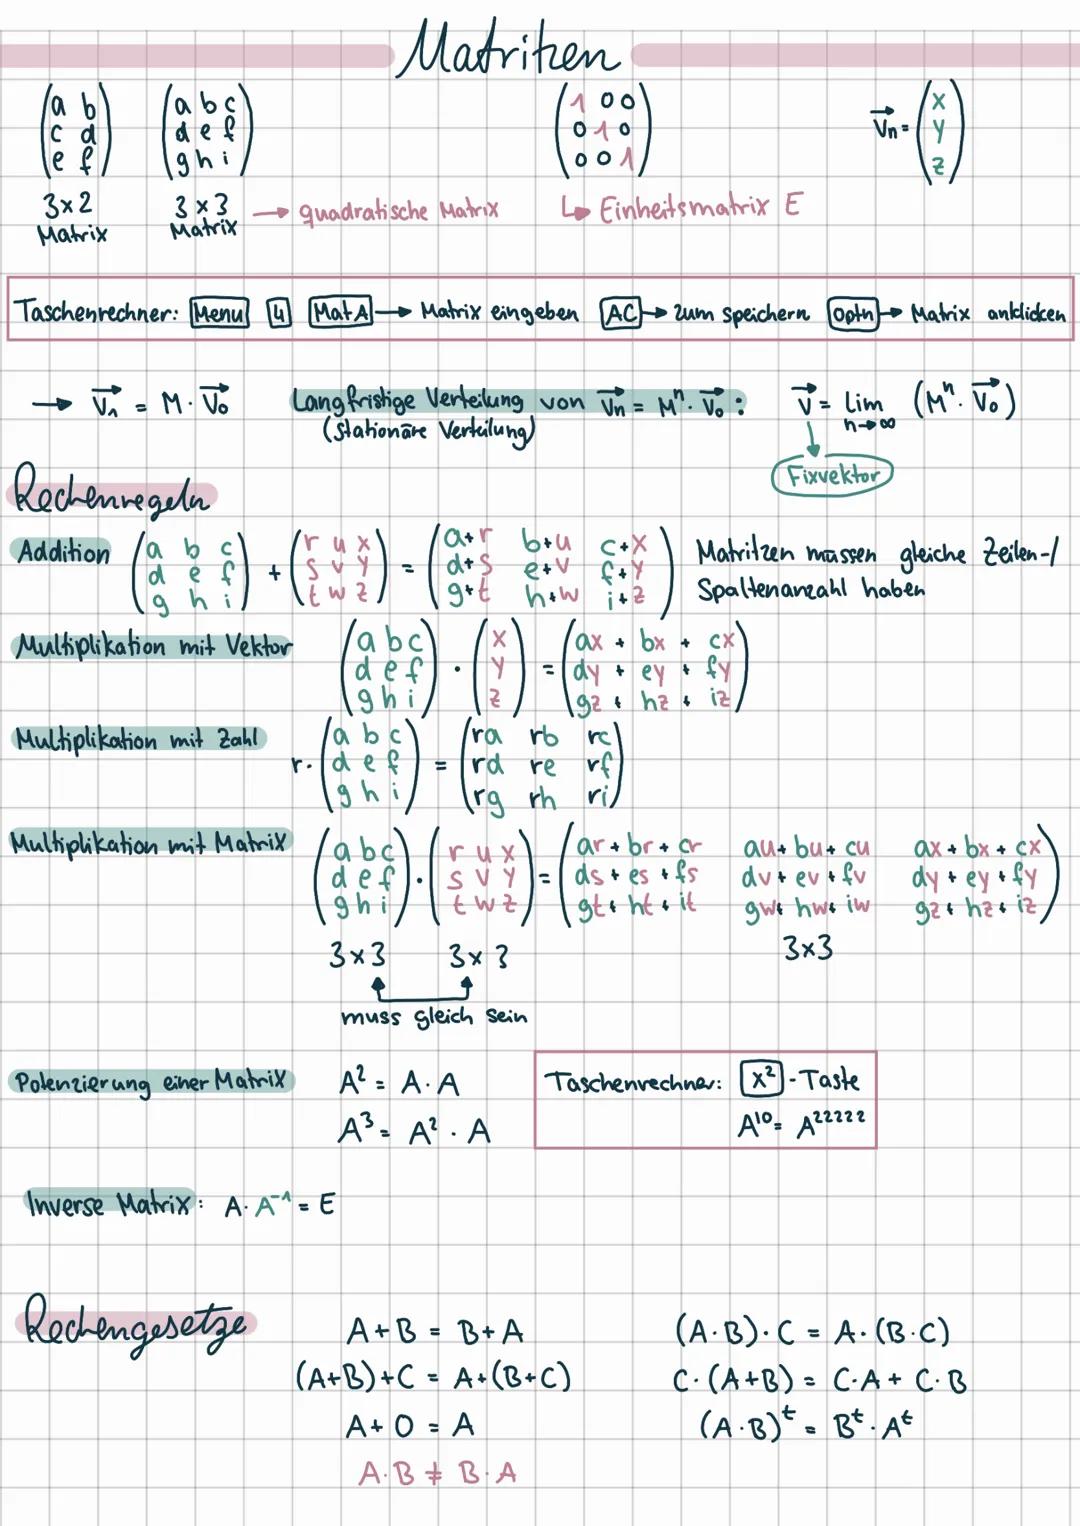 Matritzen
(a b / c d / e f) (a b c / d e f / g h i) (1 0 0 / 0 1 0 / 0 0 1) V⃗n = (x / y / z)
3x2 Matrix 3x3 Matrix → quadratische Matrix ↳ Einheitsmatrix E
Taschenrechner: Menu 4 Mat A → Matrix eingeben AC → zum speichern Optn → Matrix anklicken
→ V⃗₁ = M · V⃗₀ Langfristige Verteilung von V⃗n = Mⁿ · V⃗₀ : V⃗ = lim n→∞ (Mⁿ · V⃗₀)
(Stationäre Verteilung)
Fixvektor
Rechenregeln
Addition (a b c / d e f / g h i) + (r u x / s v y / t w z) = (a+r b+u c+x / d+s e+v f+y / g+t h+w i+z) Matritzen müssen gleiche Zeilen-/
Spaltenanzahl haben
Multiplikation mit Vektor (a b c / d e f / g h i) · (x / y / z) = (ax + bx + cx / dy + ey + fy / gz + hz + iz)
Multiplikation mit Zahl r · (a b c / d e f / g h i) = (ra rb rc / rd re rf / rg rh ri)
Multiplikation mit Matrix (a b c / d e f / g h i) · (r u x / s v y / t w z) = (ar + br + cr au + bu + cu ax + bx + cx / ds + es + fs dv + ev + fv dy + ey + fy / gt + ht + it gw + hw + iw gz + hz + iz)
3x3 3x3 3x3
muss gleich sein
Potenzierung einer Matrix A² = A · A Taschenrechner: x² - Taste
A³ = A² · A A¹⁰ = A²²²²²
Inverse Matrix: A · A⁻¹ = E
Rechengesetze
A+B = B+A (A·B)·C = A·(B·C)
(A+B)+C = A+(B+C) C·(A+B) = C·A + C·B
A+0 = A (A·B)ᵗ = Bᵗ · Aᵗ
A·B ≠ B·A